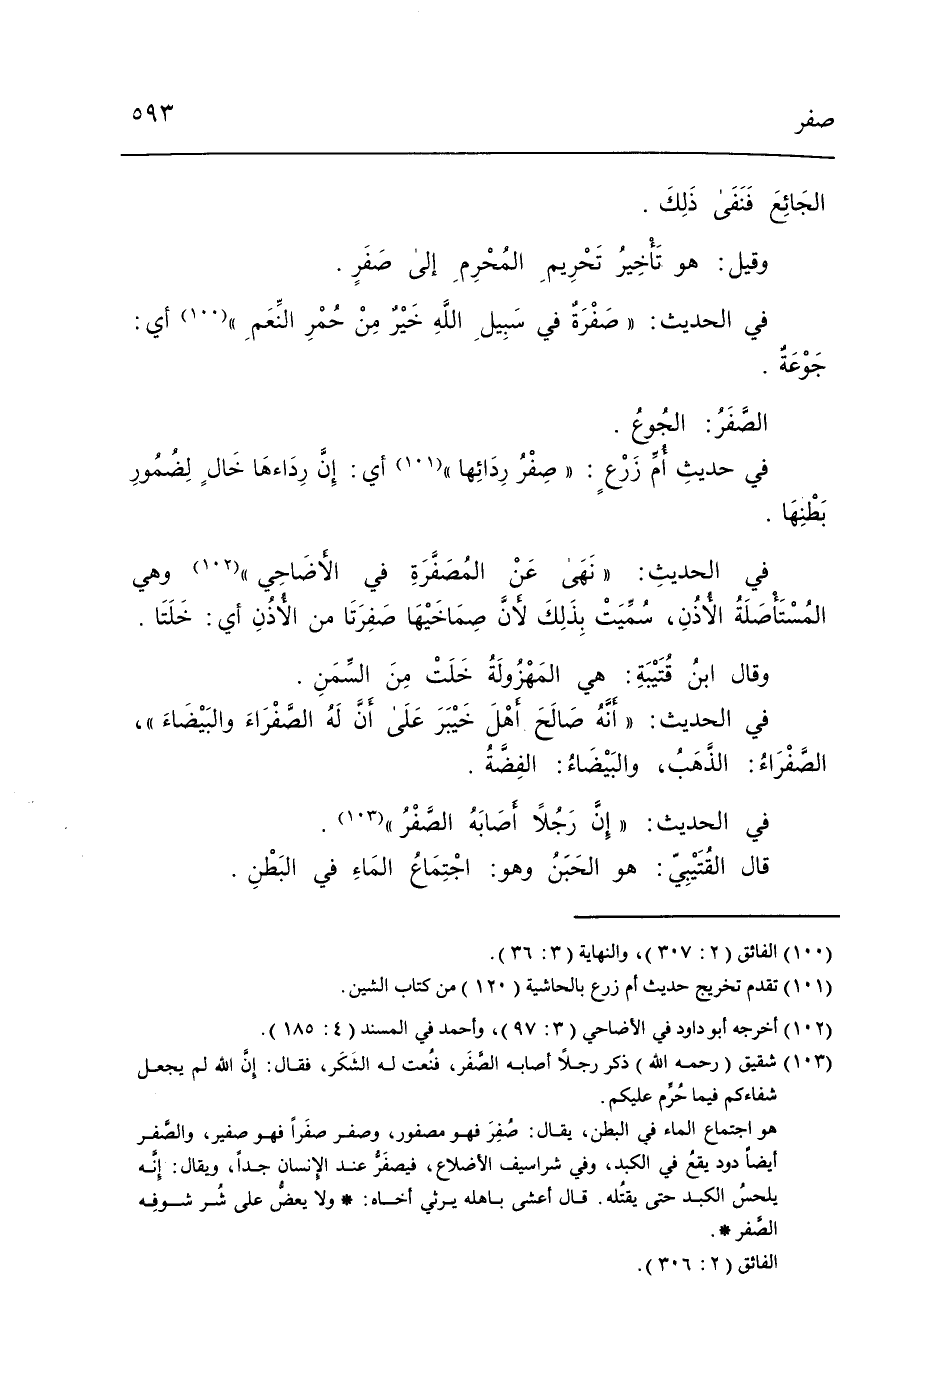 صفر
٥٩٣
الجَائِعَ فَنَفَىٰ ذَلِكَ .
وقيل: هو تَأْخِيرُ تَحْرِيمِ المُحْرِمِ إلىٰ صَفَرٍ .
في الحديث: « صَفْرَةٌ في سَبِيلِ اللَّهِ خَيْرٌ مِنْ حُمْرِ النِّعَمِ »(١٠٠) أي:
جَوْعَةٌ .
الصَّفَرُ: الجُوعُ .
في حديثِ أُمِّ زَرْعٍ : « صِفْرُ رِدَائِها »(١٠١) أي: إنَّ رِدَاءهَا خَالٍ لِضُمُورِ
بَطْنِهَا .
في الحديثِ: « نَهَىٰ عَنْ المُصَفَّرَةِ في الأَضَاحِي »(١٠٢) وهي
المُسْتَأْصَلَةُ الأُذُنِ، سُمِّيَتْ بِذَلِكَ لأَنَّ صِمَاخَيْهَا صَفِرَتَا من الأُذُنِ أي: خَلَتَا .
وقال ابنُ قُتَيْبَةِ: هي المَهْزُولَةُ خَلَتْ مِنَ السِّمَنِ .
في الحديث: « أَنَّهُ صَالَحَ أَهْلَ خَيْبَرَ عَلَىٰ أَنَّ لَهُ الصَّفْرَاءَ والبَيْضَاءَ »،
الصَّفْرَاءُ: الذَّهَبُ، والبَيْضَاءُ: الفِضَّةُ .
في الحديث: « إِنَّ رَجُلاً أَصَابَهُ الصَّفْرُ »(١٠٣) .
قال القُتَيْبِيّ: هو الحَبَنُ وهو: اجْتِمَاعُ المَاءِ في البَطْنِ .
(١٠٠) الفائق (٢: ٣٠٧)، والنهاية (٣: ٣٦).
(١٠١) تقدم تخريج حديث أم زرع بالحاشية (١٢٠) من كتاب الشين.
(١٠٢) أخرجه أبو داود في الأضاحي (٣: ٩٧)، وأحمد في المسند (٤: ١٨٥).
(١٠٣) شقيق (رحمه الله) ذكر رجلاً أصابه الصَّفَر، فنُعت له السَّكَر، فقال: إنَّ الله لم يجعل
شفاءكم فيما حُرِّم عليكم.
هو اجتماع الماء في البطن، يقال: صُفِرَ فهو مصفور، وصفر صفَراً فهو صفير، والصَّفر
أيضاً دود يقعُ في الكبد، وفي شراسيف الأضلاع، فيصفَرُّ عند الإنسان جداً، ويقال: إنَّه
يلحسُ الكبد حتى يقتُله. قال أعشى باهله يرثي أخاه: * ولا يعضُّ على شُر شوفِه
الصَّفر *.
الفائق (٢: ٣٠٦).